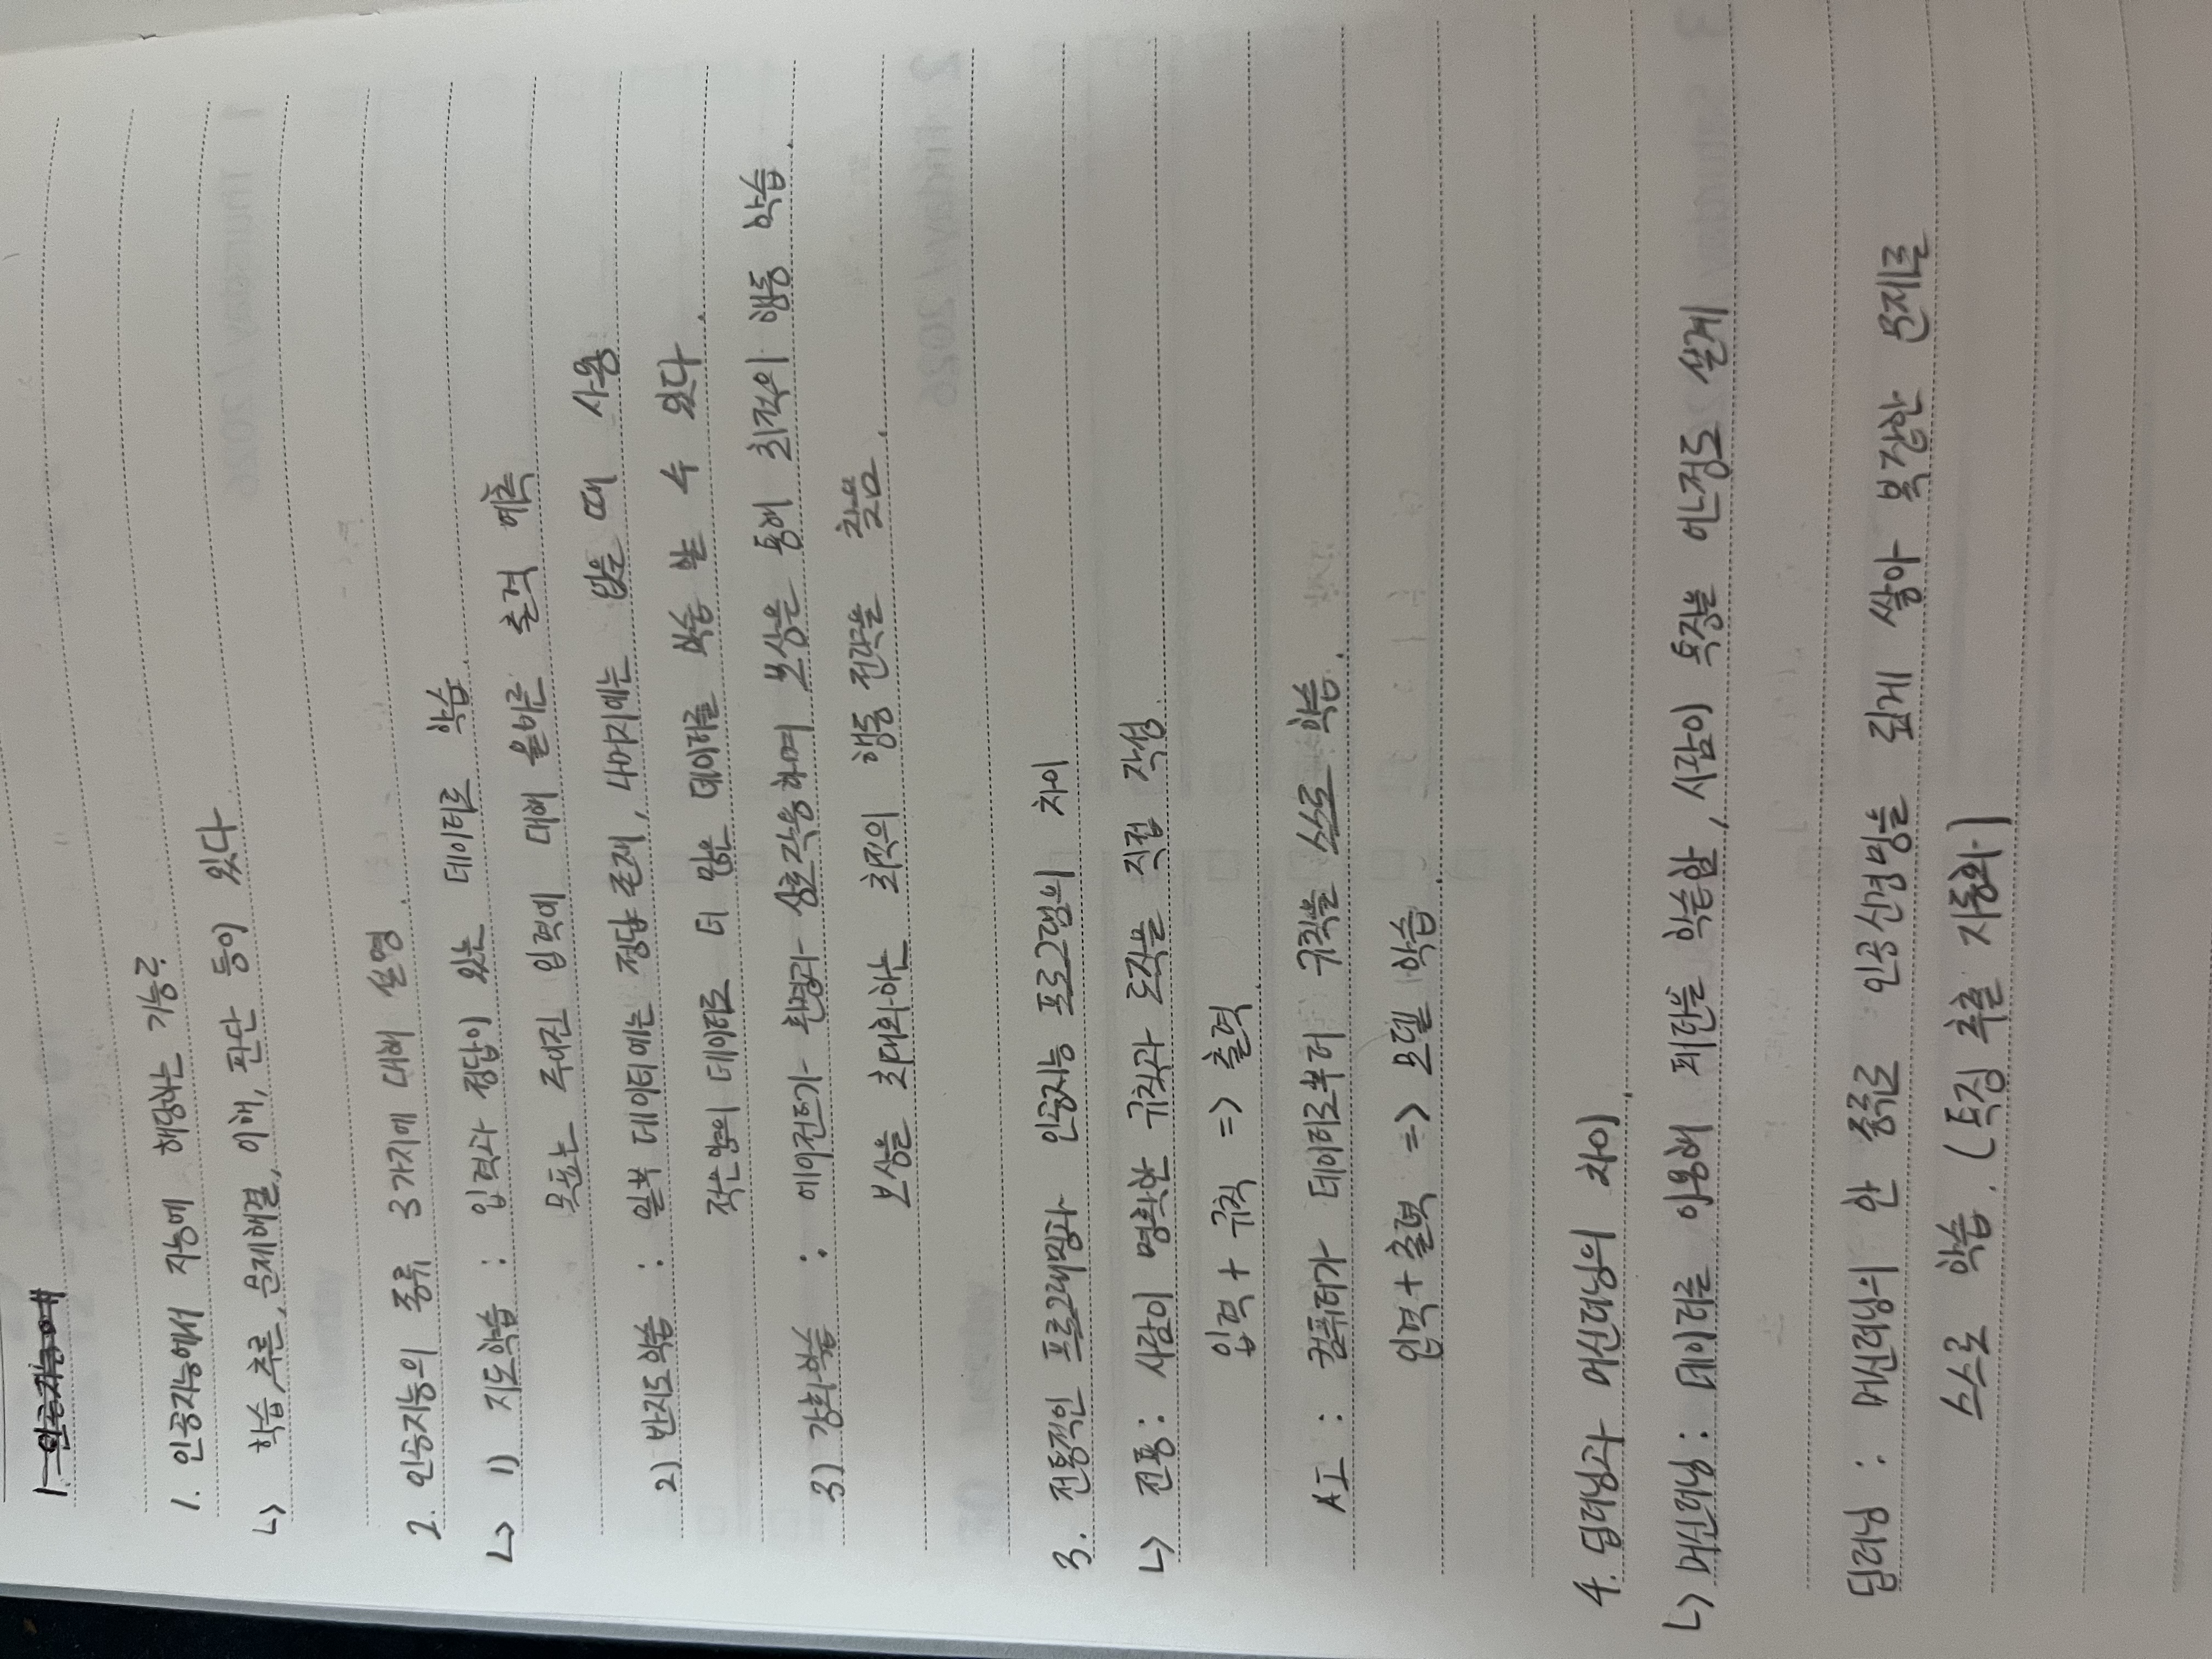 1. 인공지능에
1. 인공지능에서 지능에 해당하는 기능?
↳ 학습, 추론, 문제해결, 이해, 판단 등이 있다
2. 인공지능의 종류 3가지에 대해 설명.
↳ 1) 지도학습 : 입력과 정답이 있는 데이터로 학습.
목표는 주어진 입력에 대해 올바른 출력 예측
2) 반지도학습 : 일부 데이터에는 정답 존재, 나머지에는 없을 때 사용
적은양의 데이터로 더 많은 데이터를 학습 할 수 있다.
3) 강화학습 : 에이전트가 환경과 상호작용하며 보상을 통해 최적의 행동 학습.
보상을 최대화하는 최적의 행동 전략을 찾음.
3. 전통적인 프로그래밍과 인공지능 프로그램의 차이
↳ 전통 : 사람이 명확한 규칙과 도작을 직접 작성.
입력 + 규칙 => 출력.
AI : 컴퓨터가 데이터로부터 규칙을 스스로 학습.
입력 + 출력 => 모델 학습.
4. 딥러닝과 머신러닝의 차이.
↳ 머신러닝 : 데이터를 이용해 패턴을 학습함, 사람이 특징을 어느정도 설계
딥러닝 : 머신러닝의 한 종류로 인공신경망을 깊게 쌓아 복잡한 문제를
스스로 학습. (특징 추출 자동화)